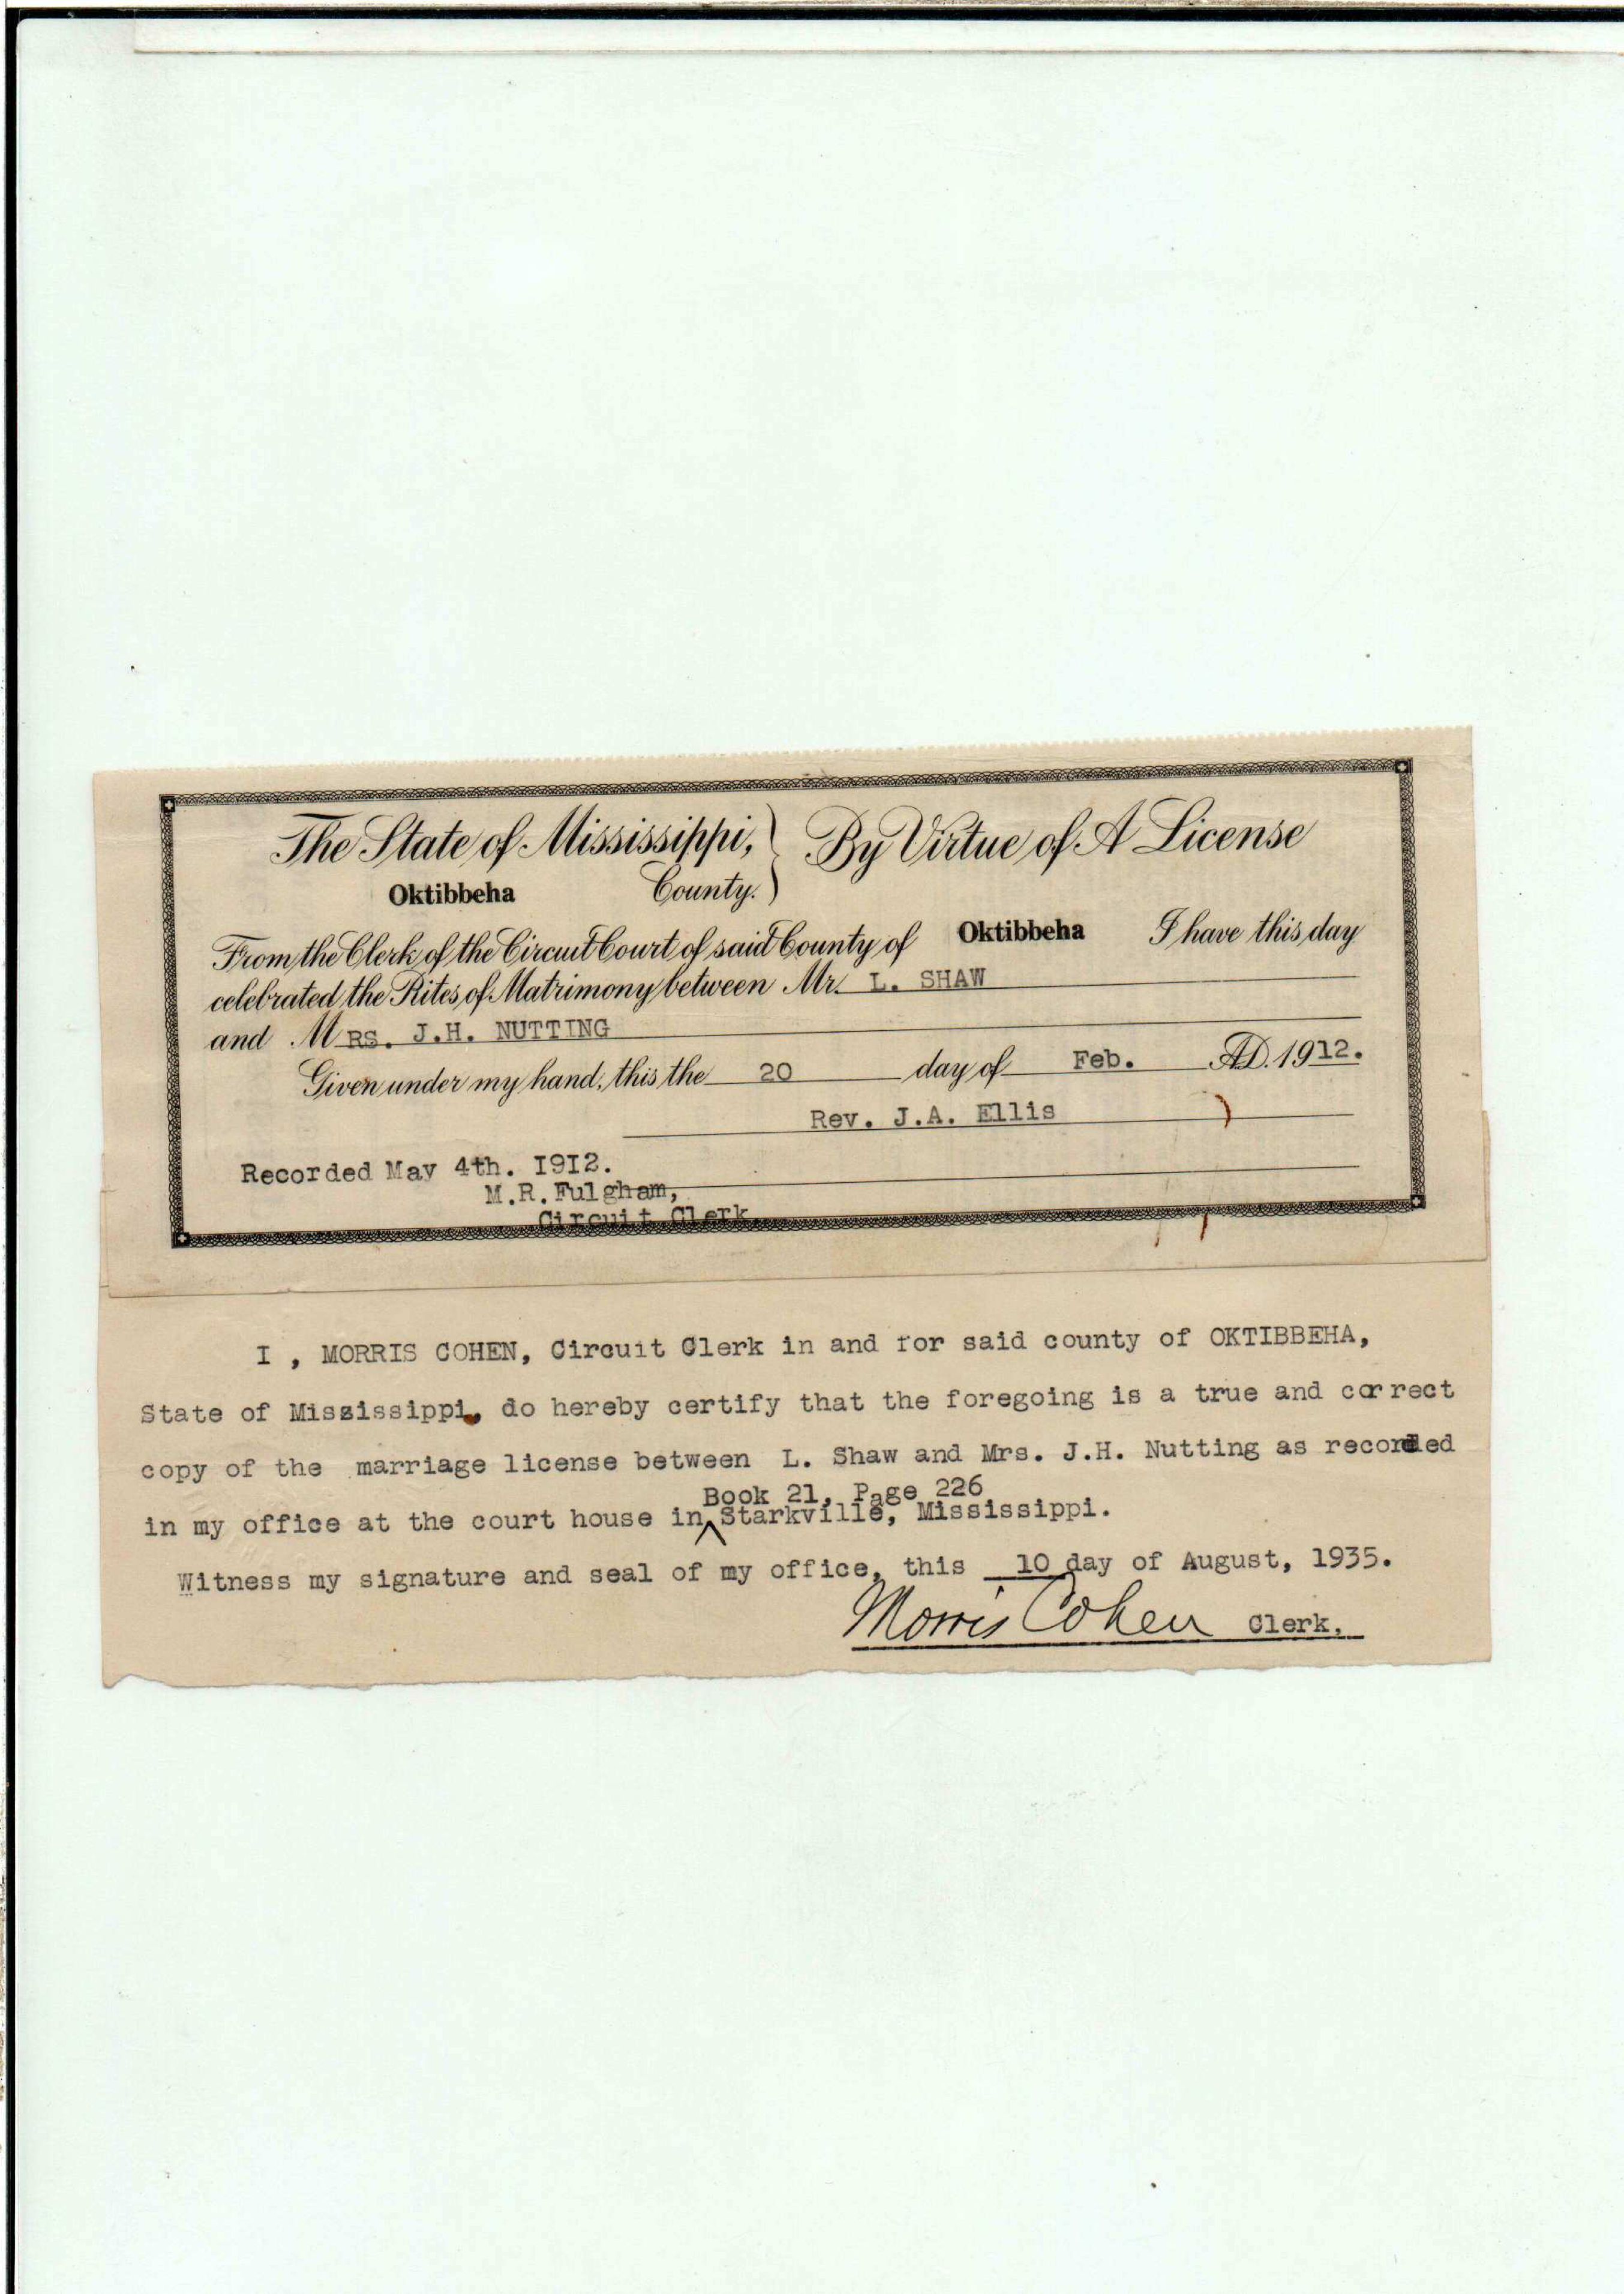 The State of Mississippi, By Virtue of A License
Oktibbeha County.
From the Clerk of the Circuit Court of said County of Oktibbeha I have this day
celebrated the Rites of Matrimony between Mr. L. SHAW
and MRS. J.H. NUTTING
Given under my hand, this the 20 day of Feb. A.D. 1912.
Rev. J.A. Ellis
Recorded May 4th. I9I2.
M.R. Fulgham,
Circuit Clerk
I , MORRIS COHEN, Circuit Clerk in and for said county of OKTIBBEHA,
State of Mississippi, do hereby certify that the foregoing is a true and correct
copy of the marriage license between L. Shaw and Mrs. J.H. Nutting as recorded
Book 21, Page 226
in my office at the court house in Starkville, Mississippi.
Witness my signature and seal of my office, this 10 day of August, 1935.
Morris Cohen Clerk.